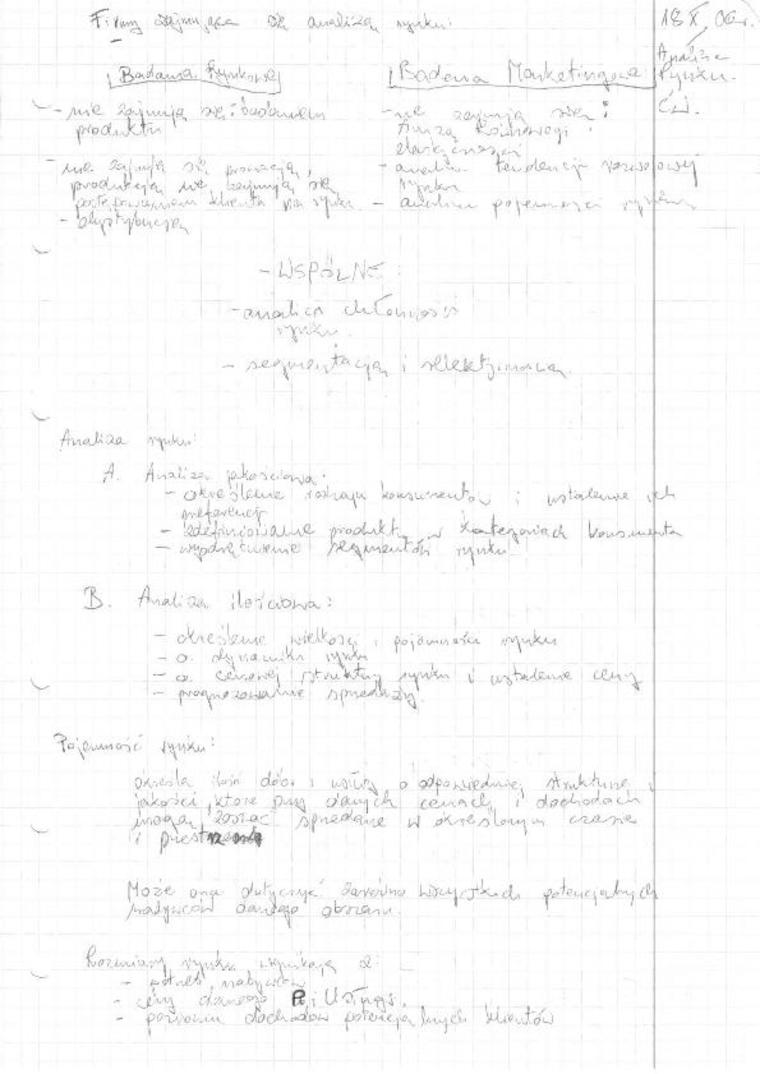 Firmy zajmujące się analizą rynku:
18 X 06r.
Analiza
Rynku.
Ćw.
Badania Rynkowe
Badania Marketingowe
- nie zajmują się: badaniem
produktu
- nie zajmują się promocją,
produkcją nie zajmują się
postępowaniem klienta na rynku.
- dystrybucją
- nie zajmują się:
elastyczności
- analiza tendencji rozwojowej
rynku
- analiza pojemności rynku
- WSPÓLNE:
- analiza chłonności
rynku.
- segmentacja i
Analiza rynku:
A. Analiza jakościowa:
- określenie rodzaju konsumentów i ustalenie ich
preferencji
- zdefiniowanie produktu w kategoriach konsumenta
- wyodrębnienie segmentów rynku
B. Analiza ilościowa:
- określenie wielkości i pojemności rynku
- o. dynamiki rynku
- o. cenowej struktury rynku i ustalenie ceny
- prognozowanie sprzedaży.
Pojemność rynku:
określa ilość dóbr i usług o odpowiedniej strukturze i
jakości, które przy danych cenach i dochodach
mogą zostać sprzedane w określonym czasie
i
Może ona dotyczyć zarówno wszystkich potencjalnych
nabywców danego obszaru.
Rozmiary rynku wynikają z:
- potrzeb nabywców
- ceny danego P. i Usługi.
- poziomu dochodów potencjalnych klientów